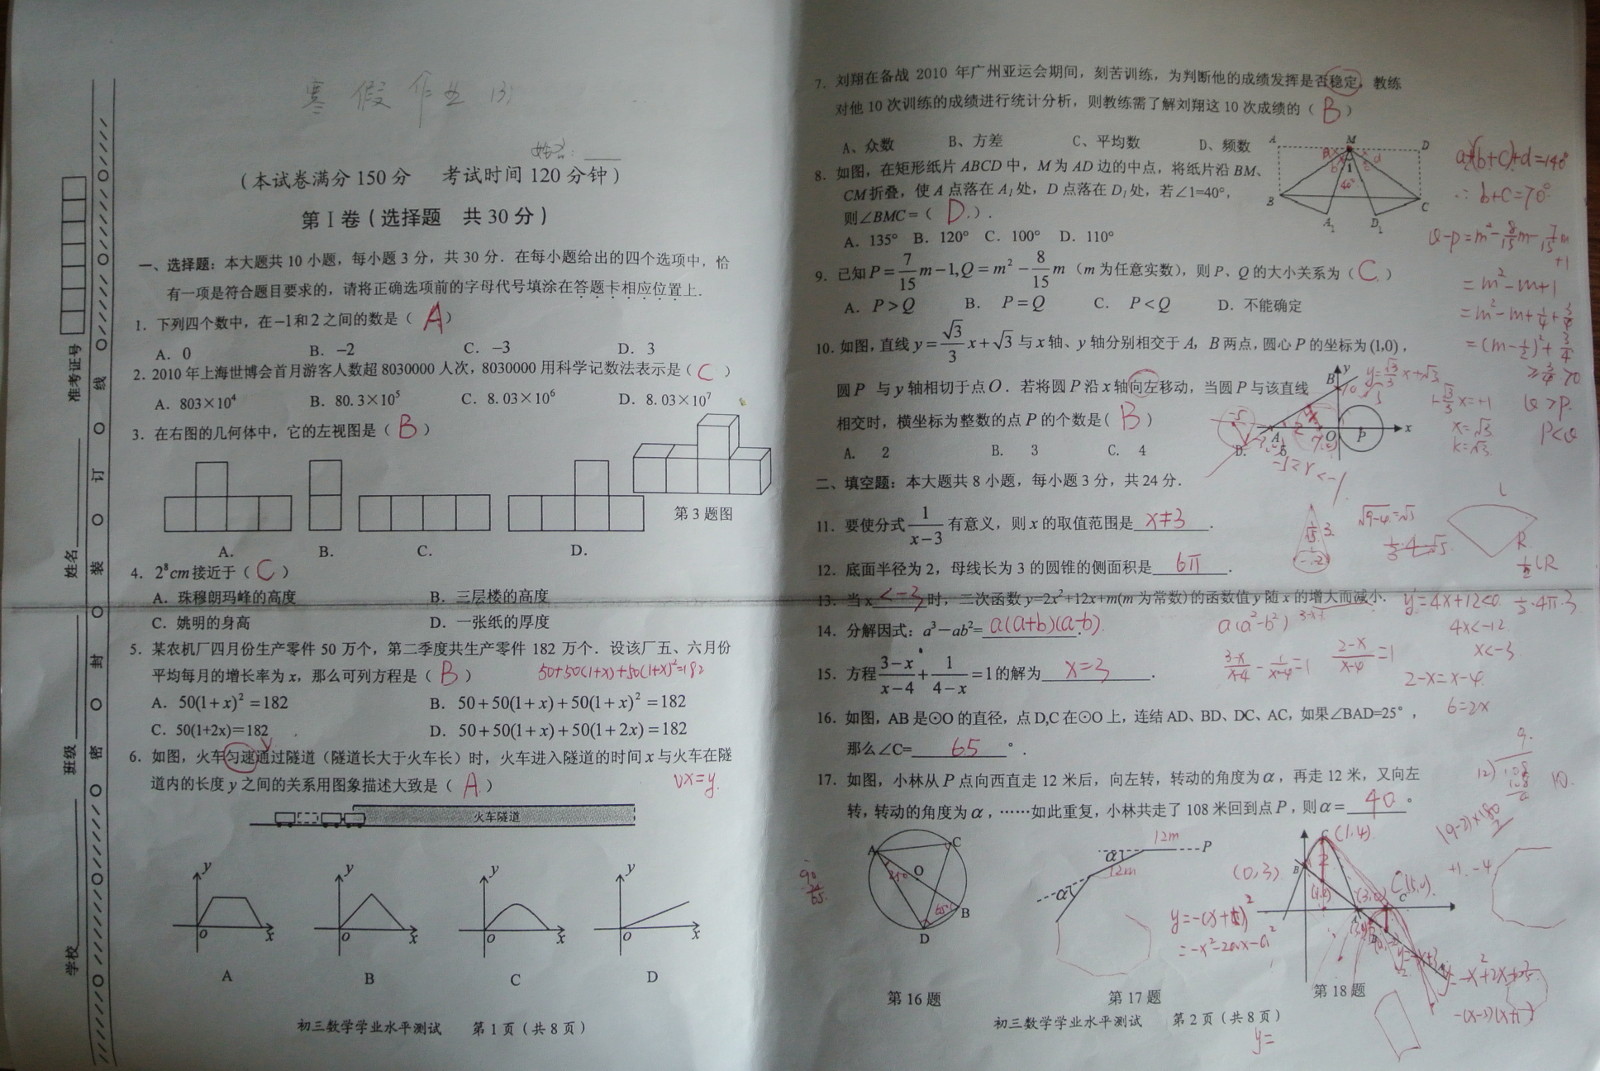 寒假作业(3)
姓名:
(本试卷满分150分 考试时间120分钟)
第Ⅰ卷(选择题 共30分)
一、选择题:本大题共10小题,每小题3分,共30分.在每小题给出的四个选项中,恰
有一项是符合题目要求的,请将正确选项前的字母代号填涂在答题卡相应位置上.
1. 下列四个数中,在−1和2之间的数是( A )
A. 0 B. −2 C. −3 D. 3
2. 2010年上海世博会首月游客人数超8030000人次,8030000用科学记数法表示是( C )
A. 803×10⁴ B. 80.3×10⁵ C. 8.03×10⁶ D. 8.03×10⁷
3. 在右图的几何体中,它的左视图是( B )
第3题图
A. B. C. D.
4. 2⁸cm接近于( C )
A. 珠穆朗玛峰的高度 B. 三层楼的高度
C. 姚明的身高 D. 一张纸的厚度
5. 某农机厂四月份生产零件50万个,第二季度共生产零件182万个.设该厂五、六月份
平均每月的增长率为x,那么可列方程是( B ) 50+50(1+x)+50(1+x)²=182
A. 50(1+x)²=182 B. 50+50(1+x)+50(1+x)²=182
C. 50(1+2x)=182 D. 50+50(1+x)+50(1+2x)=182
6. 如图,火车匀速通过隧道(隧道长大于火车长)时,火车进入隧道的时间x与火车在隧
道内的长度y之间的关系用图象描述大致是( A ) vx=y
火车隧道
y y y y
O x O x O x O x
A B C D
初三数学学业水平测试 第1页(共8页)
准考证号
姓名
班级
学校
线
订
装
封
密
7. 刘翔在备战2010年广州亚运会期间,刻苦训练,为判断他的成绩发挥是否稳定,教练
对他10次训练的成绩进行统计分析,则教练需了解刘翔这10次成绩的( B )
A、众数 B、方差 C、平均数 D、频数
8. 如图,在矩形纸片ABCD中,M为AD边的中点,将纸片沿BM、
CM折叠,使A点落在A₁处,D点落在D₁处,若∠1=40°,
则∠BMC=( D ).
A. 135° B. 120° C. 100° D. 110°
A M D
1
40°
B C
A₁ D₁
∴ b+c=70°
9. 已知P=7/15 m−1,Q=m²−8/15 m(m为任意实数),则P、Q的大小关系为( C )
A. P>Q B. P=Q C. P<Q D. 不能确定
Q-P=m²-8/15m-7/15m
+1
=m²-m+1
=m²-m+1/4+3/4
=(m-1/2)²+3/4
≥3/4>0
Q>P
P<Q
10. 如图,直线y=√3/3 x+√3与x轴、y轴分别相交于A,B两点,圆心P的坐标为(1,0),
圆P与y轴相切于点O.若将圆P沿x轴向左移动,当圆P与该直线
相交时,横坐标为整数的点P的个数是( B )
A. 2 B. 3 C. 4 D. 5
y
B
A O P x
二、填空题:本大题共8小题,每小题3分,共24分.
11. 要使分式1/(x−3)有意义,则x的取值范围是 x≠3 .
12. 底面半径为2,母线长为3的圆锥的侧面积是 6π .
13. 当x <-3 时,二次函数y=2x²+12x+m(m为常数)的函数值y随x的增大而减小.
y'=4x+12<0
4x<-12
x<-3
14. 分解因式:a³−ab²= a(a+b)(a-b).
a(a²-b²)
15. 方程(3−x)/(x−4)+1/(4−x)=1的解为 x=3 .
(3-x)/(x-4)-1/(x-4)=1
(2-x)/(x-4)=1
2-x=x-4
6=2x
16. 如图,AB是⊙O的直径,点D,C在⊙O上,连结AD、BD、DC、AC,如果∠BAD=25°,
那么∠C= 65 °.
17. 如图,小林从P点向西直走12米后,向左转,转动的角度为α,再走12米,又向左
转,转动的角度为α,……如此重复,小林共走了108米回到点P,则α= 40 °
A C O B D
12m P
α 12m
α
(1,4)
(0,3)
第16题 第17题 第18题
初三数学学业水平测试 第2页(共8页)
y=